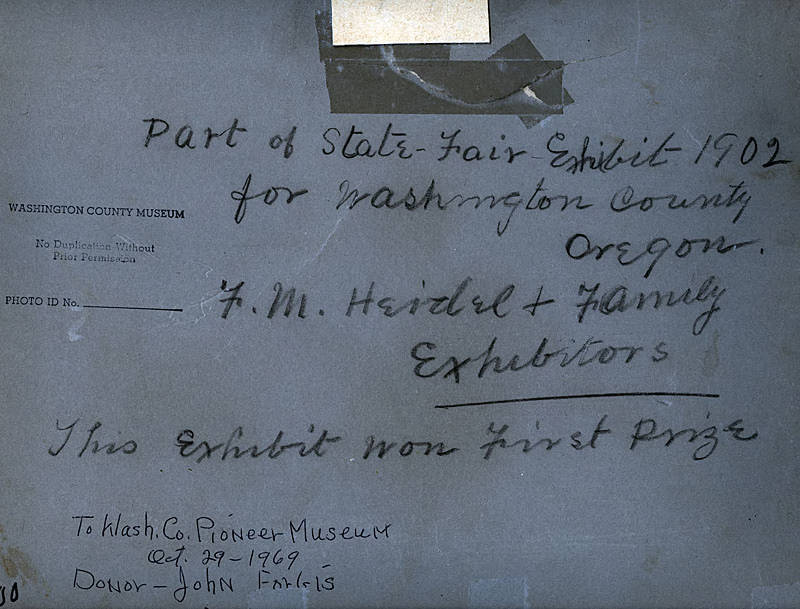 Part of State-Fair-Exhibit 1902
for Washington County
Oregon.
WASHINGTON COUNTY MUSEUM
No Duplication Without
Prior Permission
PHOTO ID No.
F. M. Heidel + Family
Exhibitors
This Exhibit won First Prize
To Wash. Co. Pioneer Museum
Oct. 29-1969
Donor - John